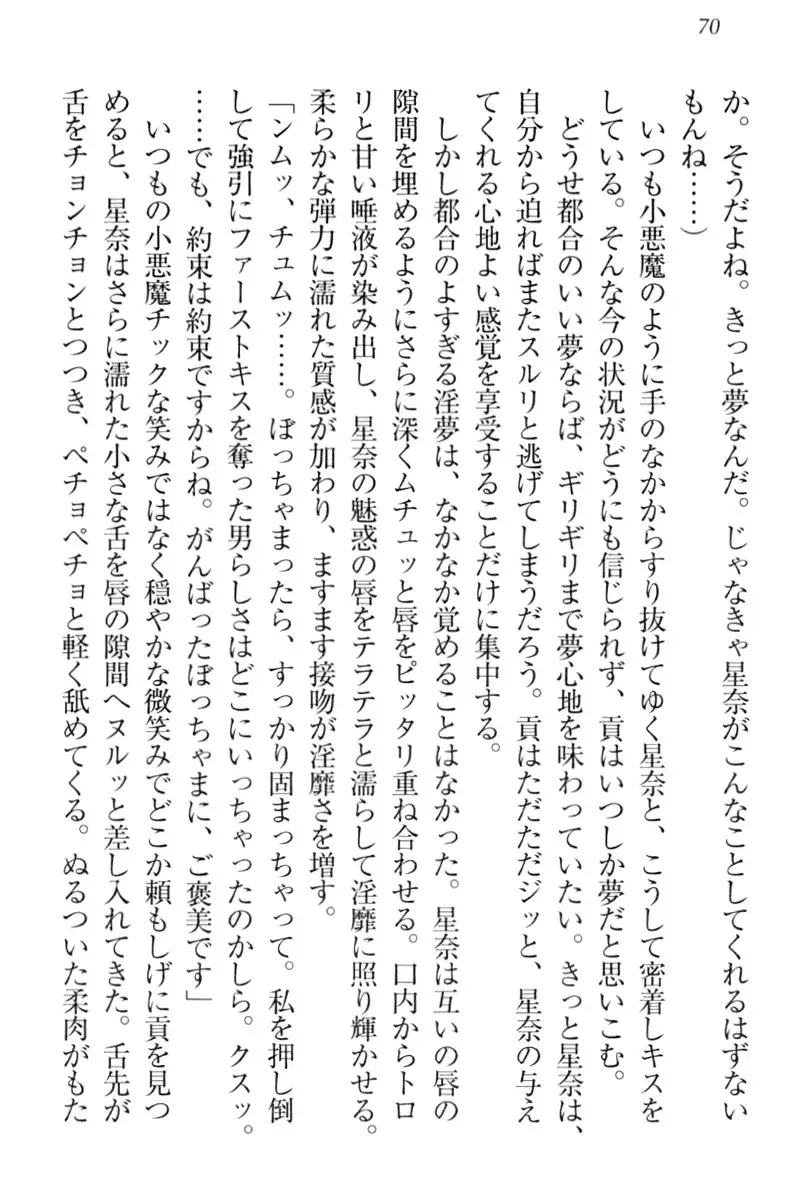 70
か。そうだよね。きっと夢なんだ。じゃなきゃ星奈がこんなことしてくれるはずない
もんね……）
　いつも小悪魔のように手のなかからすり抜けてゆく星奈と、こうして密着しキスを
している。そんな今の状況がどうにも信じられず、貢はいつしか夢だと思いこむ。
　どうせ都合のいい夢ならば、ギリギリまで夢心地を味わっていたい。きっと星奈は、
自分から迫ればまたスルリと逃げてしまうだろう。貢はただただジッと、星奈の与え
てくれる心地よい感覚を享受することだけに集中する。
　しかし都合のよすぎる淫夢は、なかなか覚めることはなかった。星奈は互いの唇の
隙間を埋めるようにさらに深くムチュッと唇をピッタリ重ね合わせる。口内からトロ
リと甘い唾液が染み出し、星奈の魅惑の唇をテラテラと濡らして淫靡に照り輝かせる。
柔らかな弾力に濡れた質感が加わり、ますます接吻が淫靡さを増す。
「ンムッ、チュムッ……。ぼっちゃまったら、すっかり固まっちゃって。私を押し倒
して強引にファーストキスを奪った男らしさはどこにいっちゃったのかしら。クスッ。
……でも、約束は約束ですからね。がんばったぼっちゃまに、ご褒美です」
　いつもの小悪魔チックな笑みではなく穏やかな微笑みでどこか頼もしげに貢を見つ
めると、星奈はさらに濡れた小さな舌を唇の隙間へヌルッと差し入れてきた。舌先が
舌をチョンチョンとつつき、ペチョペチョと軽く舐めてくる。ぬるついた柔肉がもた